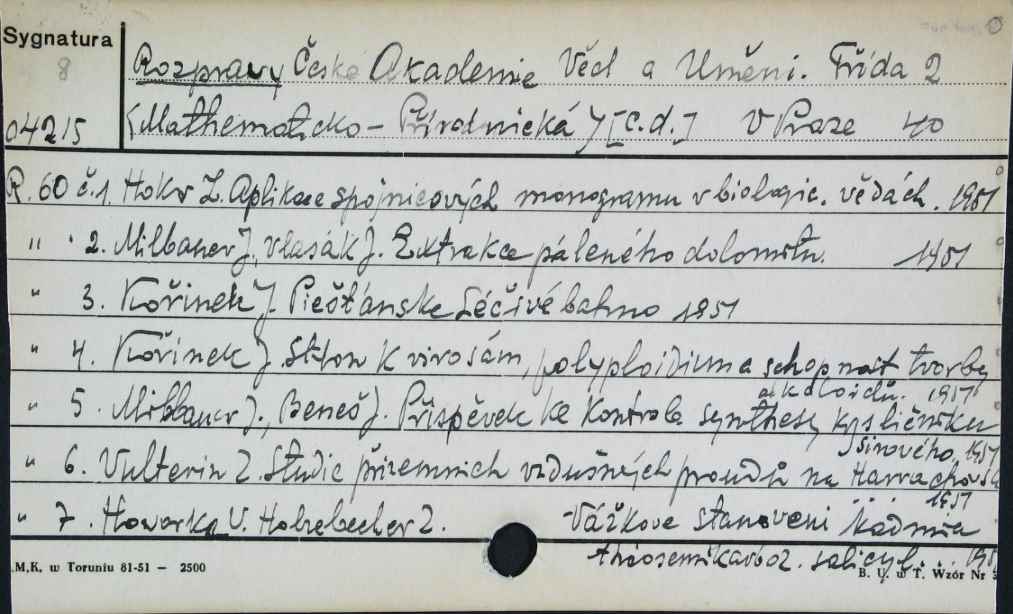 Sygnatura
8
Rozpravy České Akademie Věd a Uměni. Třída 2
04215
(Mathematicko - Přírodnická) [c.d.] V Praze 40
R. 60 č.1. Z. Aplikace spojnicových monogramu v biologic. vědách. 1951
" 2. Milbauer J., Vlasák J. Extrakce páleného dolomitu. 1951
" 3. Kořinek J. Piešťánske Léčivé bahno 1951
" 4. Kořinek J. K virosám, polyploidium a schopnost tvorby
alkaloidů. 1951
" 5. Milbauer J., Beneš J. Přispěvek ke kontrole synthesy kysličniku
sírového. 1951
" 6. Vulterin Z. Studie přizemnich vzdušných proudů na Harrachovsk
1951
" 7. Hovorka V. Holzbecher Z. Vážkove stanoveni kadmia
thiosemikarboz. salicyl. 195
M.K. w Toruniu 81-51 — 2500
B. U. w T. Wzór Nr 3